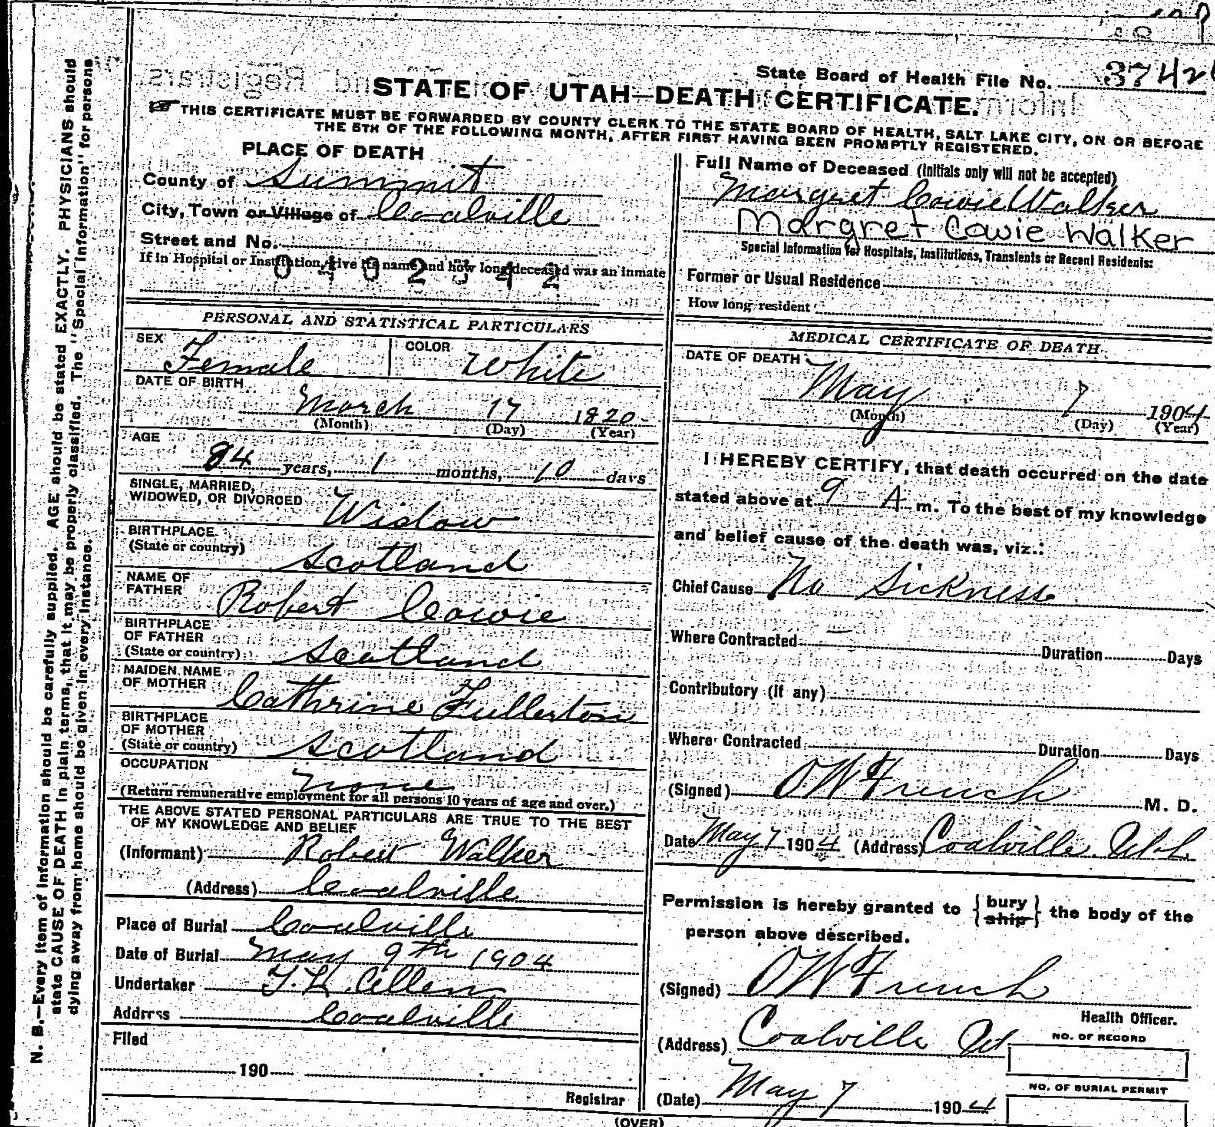 State Board of Health File No. 3742
STATE OF UTAH—DEATH CERTIFICATE.
THIS CERTIFICATE MUST BE FORWARDED BY COUNTY CLERK TO THE STATE BOARD OF HEALTH, SALT LAKE CITY, ON OR BEFORE
THE 5TH OF THE FOLLOWING MONTH, AFTER FIRST HAVING BEEN PROMPTLY REGISTERED.
PLACE OF DEATH
County of Summit
City, Town or Village of Coalville
Street and No.
If in Hospital or Institution, give its name and how long deceased was an inmate
0402342
Full Name of Deceased (Initials only will not be accepted)
Margret Cowie Walker
Margret Cowie Walker
Special Information for Hospitals, Institutions, Transients or Recent Residents:
Former or Usual Residence
How long resident
PERSONAL AND STATISTICAL PARTICULARS
SEX Female COLOR White
DATE OF BIRTH
March 17 1820
(Month) (Day) (Year)
AGE
84 years, 1 months, 10 days
SINGLE, MARRIED,
WIDOWED, OR DIVORCED Widow
BIRTHPLACE
(State or country) Scotland
NAME OF
FATHER Robert Cowie
BIRTHPLACE
OF FATHER
(State or country) Scotland
MAIDEN NAME
OF MOTHER Cathrine Fullerton
BIRTHPLACE
OF MOTHER
(State or country) Scotland
OCCUPATION
none
(Return remunerative employment for all persons 10 years of age and over.)
THE ABOVE STATED PERSONAL PARTICULARS ARE TRUE TO THE BEST
OF MY KNOWLEDGE AND BELIEF
(Informant) Robert Walker
(Address) Coalville
Place of Burial Coalville
Date of Burial May 9th 1904
Undertaker
Address Coalville
Filed
190
Registrar
MEDICAL CERTIFICATE OF DEATH
DATE OF DEATH
May 7 1904
(Month) (Day) (Year)
I HEREBY CERTIFY, that death occurred on the date
stated above at 9 A m. To the best of my knowledge
and belief cause of the death was, viz.:
Chief Cause No Sickness
Where Contracted — Duration Days
Contributory (if any)
Where Contracted Duration Days
(Signed) O W French M. D.
Date May 7 1904 (Address) Coalville
Permission is hereby granted to { bury
ship } the body of the
person above described.
(Signed) O W French
Health Officer.
(Address) Coalville Ut
NO. OF RECORD
(Date) May 7 1904
NO. OF BURIAL PERMIT
(OVER)
N. B.—Every item of information should be carefully supplied. AGE should be stated EXACTLY. PHYSICIANS should
state CAUSE OF DEATH in plain terms, that it may be properly classified. The "Special Information" for persons
dying away from home should be given in every instance.